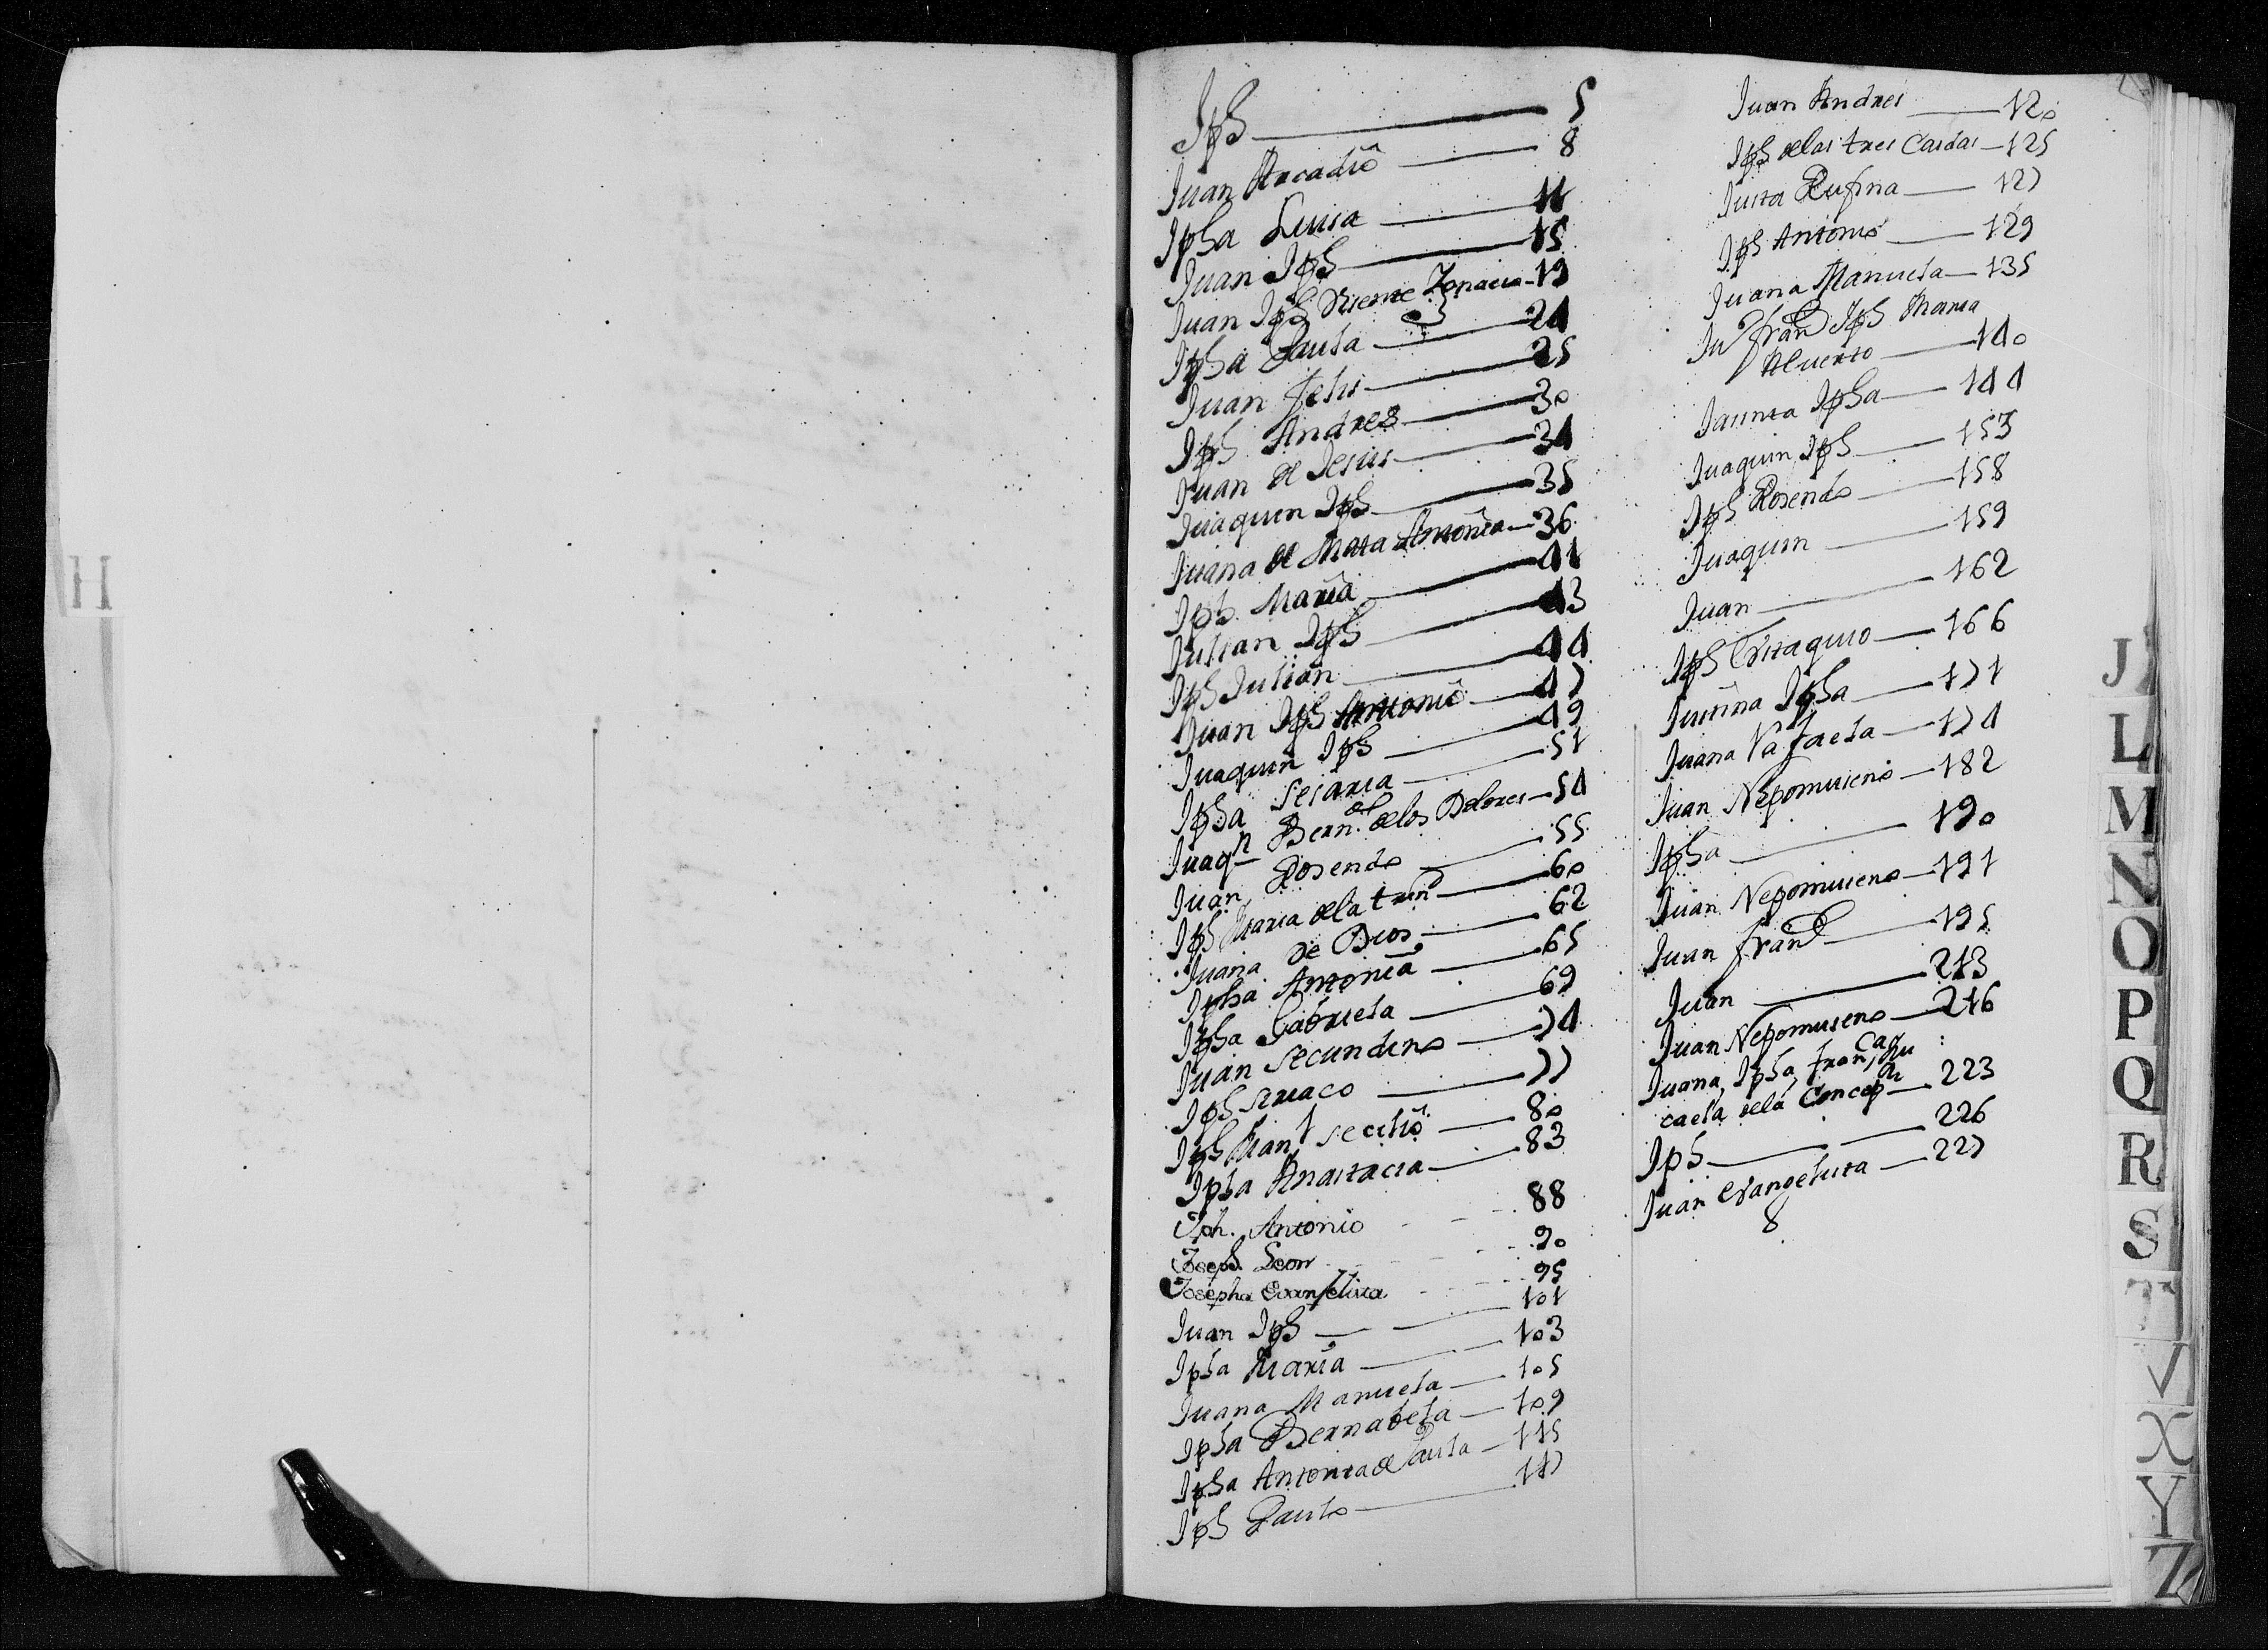 H
Jph 5
Juan Arcadio 8
Jpha Luisa 11
Juan Jph 15
Juan Jph Visente Ygnacio 19
Jpha Paula 24
Juan Felis 25
Jph Andres 30
Juan de Jesus 34
Juaquin Jph 35
Juana de Mata Antonia 36
Jph Maria 41
Julian Jph 43
Jph Julian 44
Juan Jph Antonio 47
Juaquin Jph 49
Jpha Sesaria 51
Juaqn Bern. de los Dolores 54
Juan Rosendo 55
Jph Maria de la trind 60
Juana de Dios 62
Jpha Antonia 65
Jpha Gabriela 69
Juan Secundino 74
Jph siriaco 77
Jph Juan, Secilio 80
Jpha Anastacia 83
Jph. Antonio 88
Joseph Leon 90
Josepha Evangelista 95
Juan Jph 101
Jpha Maria 103
Juana Manuela 105
Jpha Bernabela 109
Jpha Antonia de Paula 115
Jph Paulo 117
Juan Andres 120
Jph de las tres Caidas 125
Justa Rufina 127
Jph Antonio 129
Juana Manuela 135
Jn Fran Jph Maria
Alverto 140
Jasinta Jpha 144
Juaquin Jph 153
Jph Rosendo 158
Juaquin 159
Juan 162
Jph Eustaquio 166
Justina Jpha 171
Juana Rafaela 174
Juan Nepomuseno 182
Jpha 190
Juan Nepomuseno 191
Juan Fran 195
Juan 213
Juan Nepomuseno 216
Juana, Jpha, Fran,
caela de la Concep 223
Jph 226
Juan Evangelista 227
8
J
L
M
N
O
P
Q
R
S
T
V
X
Y
Z